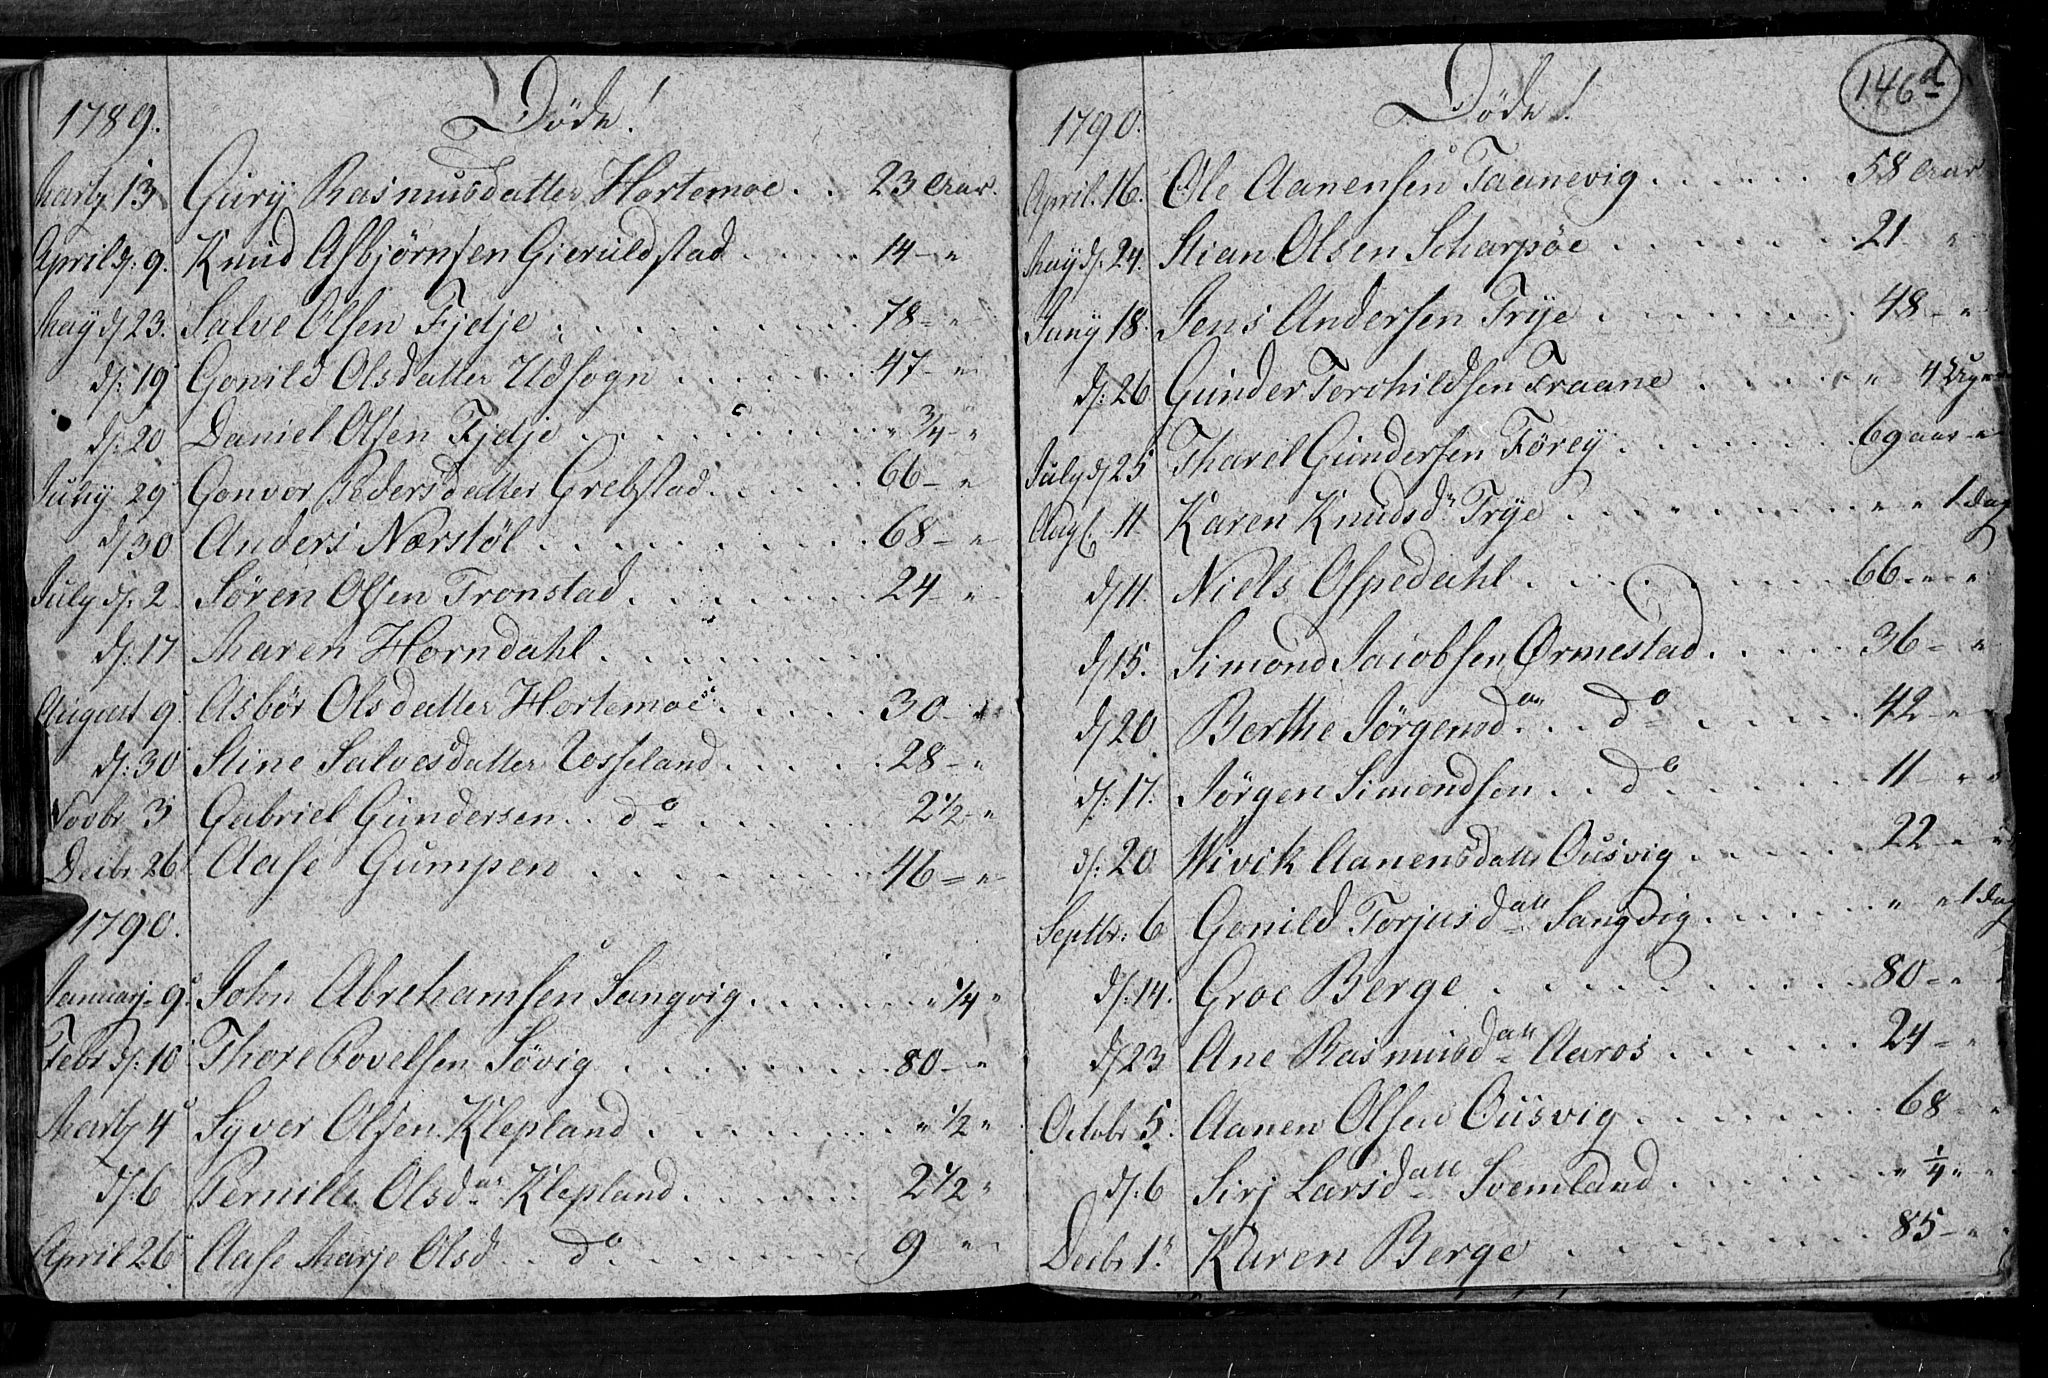 1789. Døde!
Martz 13 Gury Rasmusdatter Hortemoe . . 23 Aar.
April d: 9. Knud Asbjørnsen Gieruldstad . . . 14 - "
May d 23. Salve Olsen Fjelje . . . . . . . 78 - "
d: 19 Gonild Olsdatter Udsogn . . . . . 47 - "
d: 20 Daniel Olsen Fjelje . . . . . . " 3/4 - "
Juny 29 Gonvor Pedersdatter Grebstad . . . . 66 - "
d 30 Anders Nærstøl . . . . . . . . 68 - "
July d: 2. Søren Olsen Tronstad . . . . . . 24 - "
d: 17 Maren Horndahl . . . . . . .
August 9 Asbør Olsdatter Hortemoe . . . . 30 - "
d: 30 Stine Salvesdatter Usseland . . . . 28 - "
Novbr 3 Gabriel Gundersen . . do . . . . . 2 1/2 - "
Decbr 26 Aase Gumpen . . . . . . . 46 - "
1790.
Januarj 9. John Abrehamsen Sangvig . . . . . " 1/4 "
Febr d: 10 Thore Povelsen Søvig . . . . . . 80 - "
Martz 4 Syver Olsen Klepland . . . . . . " 1/2 "
d: 6 Pernille Olsdatt Klepland . . . . 2 1/2 "
April 26 Aase Marje Olsd . . do . . . . . . 9 "
146 d
1790. Døde!
April. 16. Ole Aanensen Taanevig . . . . . 58 Aar
May d: 24. Stian Olsen Scharpøe . . . . . 21 "
Juny 18 Jens Andersen Trye . . . . . . . 48 - "
d: 26 Gunder Terchildsen Fraane . . . . " 4 Uger
July d 25 Tharel Gundersen Førey . . . . . 69 aar - "
Aug. 11 Karen Knudsdr Trye . . . . . . . " " 1 Dag
d 11. Niels Ospedahl . . . . . . . . 66 - " - "
d 15. Simond Jacobsen Ørmestad . . . . . 36 - "
d 20. Berthe Jørgensdatt . . do . . . . . 42 - " "
d: 17. Jørgen Simondsen . . do . . . . . 11 - " "
d: 20 Wivik Aanensdatter Ousvig . . . . . 22 - " "
Septbr: 6 Gonild Torjusdatt Sangvig . . . . " " 1 Dag
d: 14. Groe Berge . . . . . . . . . 80 - " "
d 23 Ane Rasmusdatt Aaros . . . . . . 24 - "
Octobr 5. Aanen Olsen Ousvig . . . . . . . 68 - "
d: 6 Sirj Larsdatt Svemland . . . . . " 1/4 " "
Decbr 1. Karen Berge . . . . . . . . . 85 - "